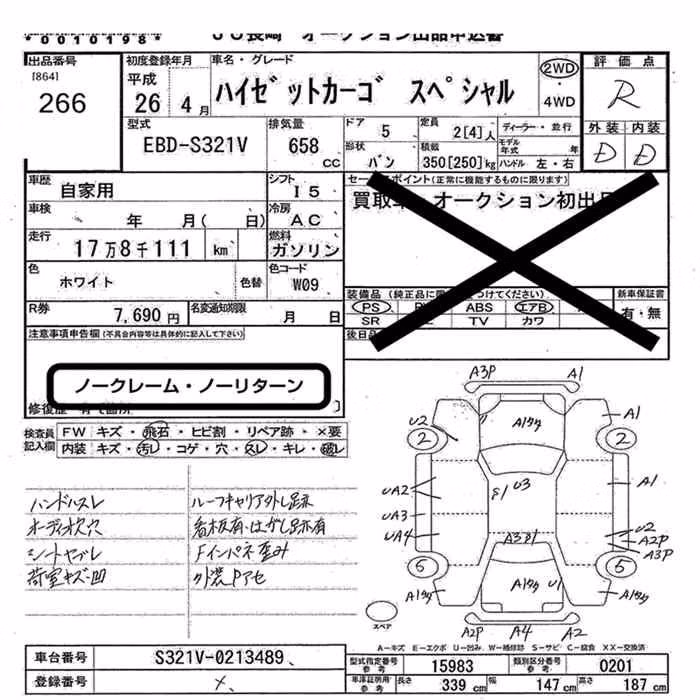 *0010198*
JU長崎 オークション出品申込書
出品番号 [864] 266
初度登録年月 平成 26年 4月
車名・グレード ハイゼットカーゴ スペシャル
2WD ・ 4WD
評価点 R
外装 内装
D D
型式 EBD-S321V
排気量 658 cc
ドア 5
定員 2[4]人
ディーラー・並行
形状 バン
積載 350[250]kg
モデル年式 年
ハンドル 左・右
車歴 自家用
シフト I5
車検 年 月( 日)
冷房 AC
走行 17万8千111 km
燃料 ガソリン
色 ホワイト 色替
色コード W09
R券 7,690円
名変通知期限 月 日
セールスポイント(正常に機能するものに限ります)
買取車 オークション初出品
装備品 (純正品に
つけてください)
新車保証書
PS ABS エアB
有・無
SR TV カワ
後日品
注意事項申告欄(不具合内容等は具体的に記入して下さい)
ノークレーム・ノーリターン
修復歴 有
検査員記入欄
FW キズ・飛石・ヒビ割・リペア跡・×要
内装 キズ・汚レ・コゲ・穴・スレ・キレ・破レ
ハンドルスレ ルーフキャリア外し跡
オーディオ欠穴 看板有・はがし跡有
シートヤブレ Fインパネ歪み
荷室キズ・凹 外装Pアセ
A3P A1
U2 A1ワク A1
2 2
UA2 S1 U3 A1
UA3 U2
UA4 A3 A2P
A3P
5 5
A1ワク A1ワク U1 A1ワク
スペア A2P A4 A2
A-キズ E-エクボ U-凹み W-補修跡 S-サビ C-腐食 XX-交換済
車台番号 S321V-0213489
登録番号
型式指定番号 参考 15983
類別区分番号 参考 0201
車庫証明用 参考 長さ 339 cm 幅 147 cm 高さ 187 cm